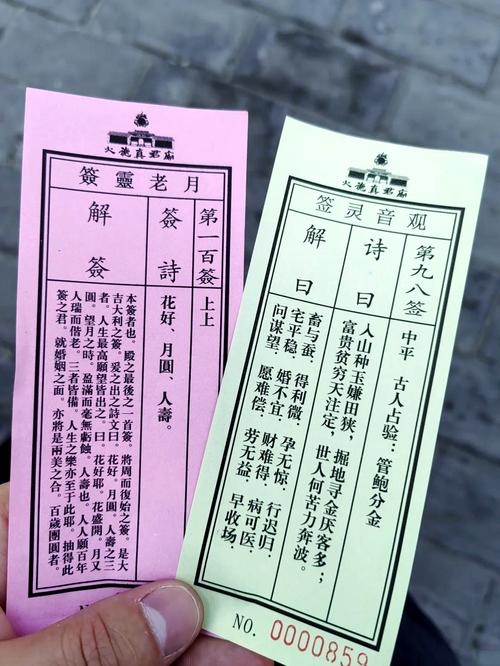 火德真君廟
月老靈簽
第一百簽 上上
簽詩 花好、月圓、人壽。
解簽
本簽者也。殿之最後之一首簽。將周而復始之簽。是大
吉大利之簽。爰之出之詩文曰。花好。月圓。人壽之三
者。人生最高願望皆出之。曰。花好耶。花盛開。月又
圓。望月之時。盈滿而毫無虧蝕。人壽也。人人願百年
人瑞而偕老。三者皆備。人生之樂亦至于此耶。抽得此
簽之君。就婚姻之面。亦將是兩美之合。百歲團圓者。
火德真君廟
观音灵签
第九八签 中平 古人占验：管鲍分金
诗曰
入山种玉嫌田狭，掘地寻金厌客多；
富贵贫穷天注定，世人何苦力奔波。
解曰
畜与蚕，得利微，孕无惊，行迟归，
宅平稳，婚不宜，财难得，病可医，
问谋望，愿难偿，劳无益，早收场。
NO. 0000859